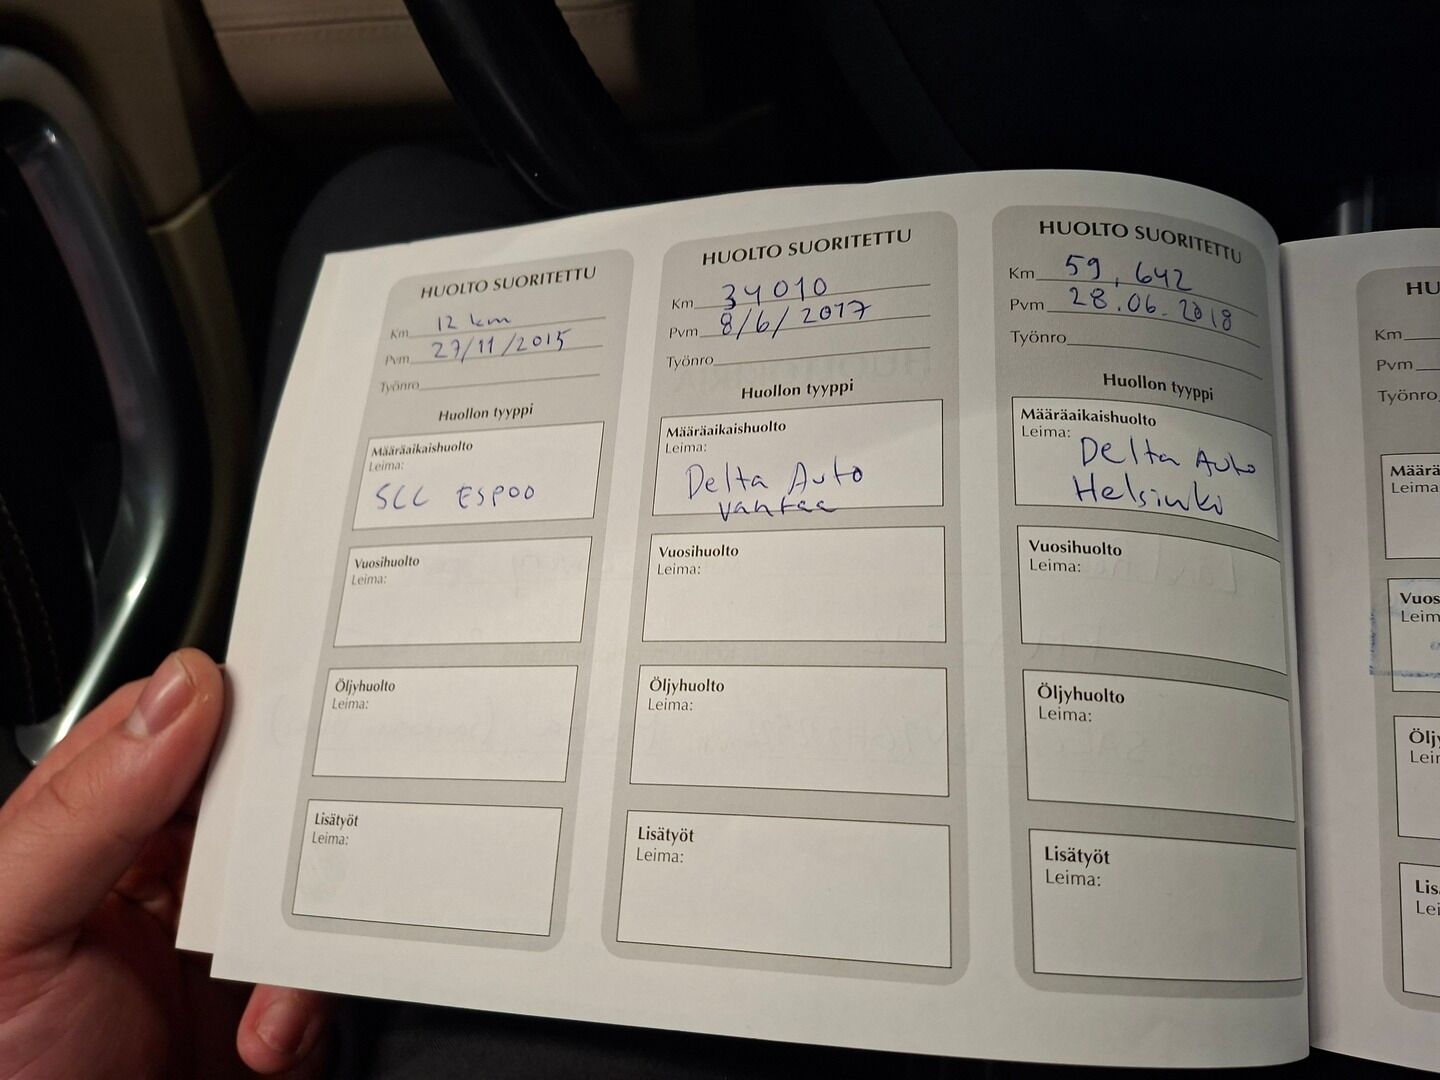 HUOLTO SUORITETTU
Km 12 km
Pvm 27/11/2015
Työnro
Huollon tyyppi
Määräaikaishuolto
Leima:
SCC ESPOO
Vuosihuolto
Leima:
Öljyhuolto
Leima:
Lisätyöt
Leima:
HUOLTO SUORITETTU
Km 34010
Pvm 8/6/2017
Työnro
Huollon tyyppi
Määräaikaishuolto
Leima:
Delta Auto
vantaa
Vuosihuolto
Leima:
Öljyhuolto
Leima:
Lisätyöt
Leima:
HUOLTO SUORITETTU
Km 59,642
Pvm 28.06.2018
Työnro
Huollon tyyppi
Määräaikaishuolto
Leima:
Delta Auto
Helsinki
Vuosihuolto
Leima:
Öljyhuolto
Leima:
Lisätyöt
Leima:
HU
Km
Pvm
Työnro
Määrä
Leima
Vuos
Leim
Öljy
Lei
Lis
Lei